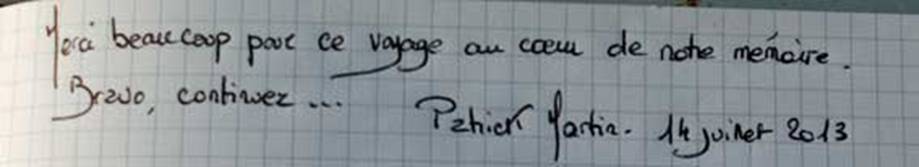 Merci beaucoup pour ce voyage au cœur de notre mémoire.
Bravo, continuez ...
Patrick Martin. 14 juillet 2013